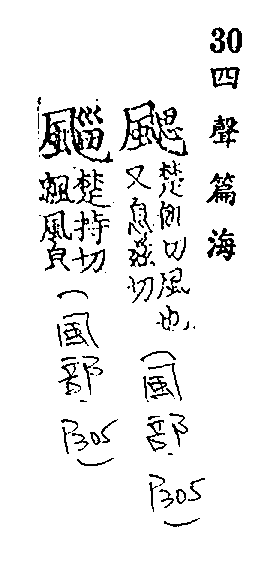 30四聲篇海
颸
楚側切風也
又息茲切
(風部 P305)
楚持切
風皃
(風部 P305)